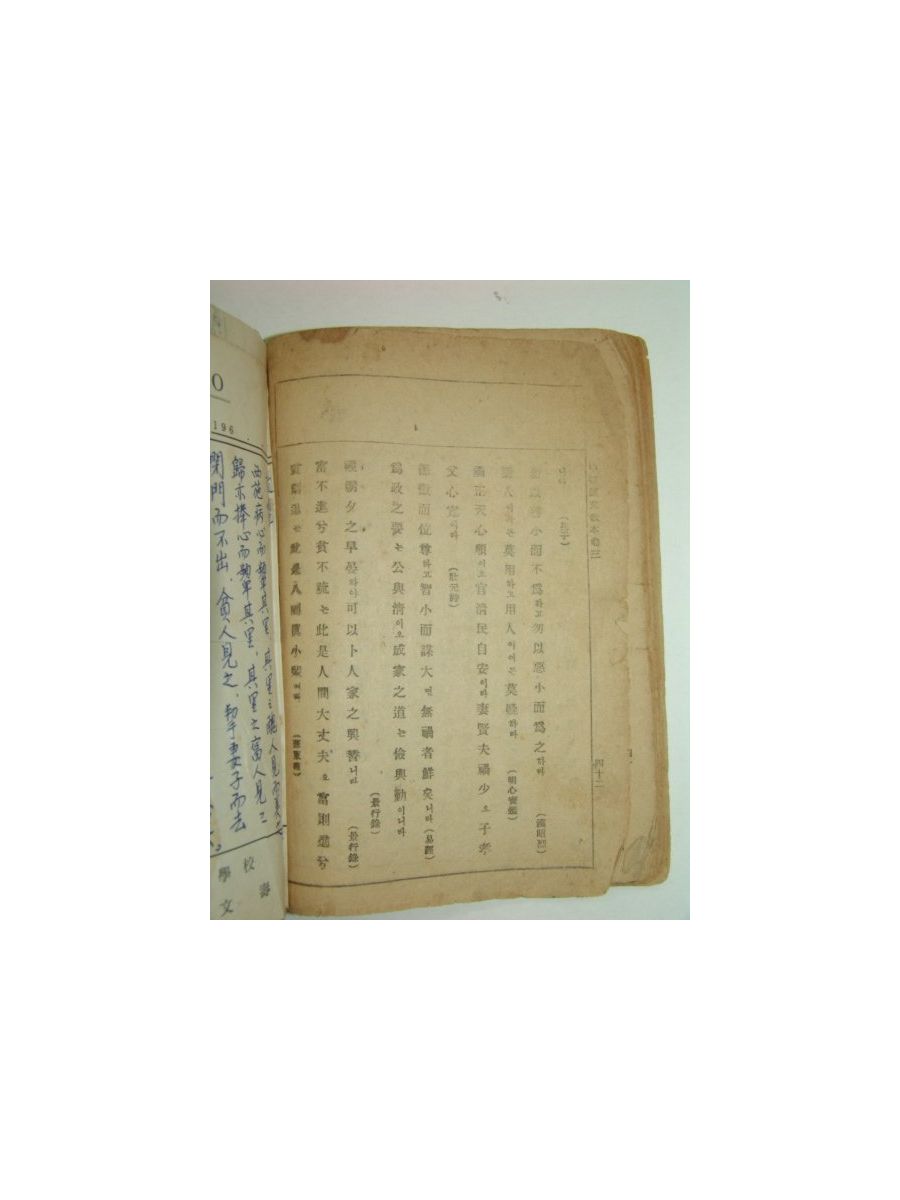 文敎本卷三
四十二
니라 (莊子)
小而不爲하고 勿以惡小而爲之하라 (漢昭烈)
莫用하고 用人이어든 莫疑하라 (明心寶鑑)
正天心順이오 官淸民自安이라 妻賢夫禍少오 子孝
父心寬이라 (壯元詩)
而位尊하고 智小而謀大면 無禍者鮮矣니라 (易經)
爲政之要는 公與淸이오 成家之道는 儉與勤이니라
(景行錄)
觀朝夕之早晏하야 可以卜人家之興替니라 (景行錄)
富不進兮貧不疏는 此是人間大丈夫오 富則進兮
貧則退는 此是人間眞小輩니라
西施病心而顰其里, 其里之醜人見而美之
歸亦捧心而顰其里, 其里之富人見之
閉門而不出, 貧人見之, 挈妻子而去
O
196
學校
文